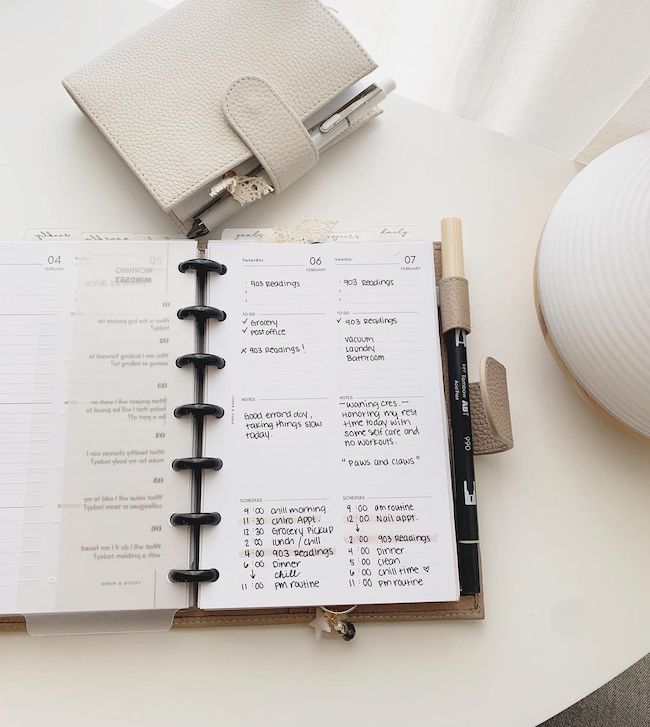 04
FEBRUARY
MORNING
MINDSET
01
What is the big picture for
today?
Who am I looking forward to
seeing or talking to?
What project will I work on
today that I will be proud to
be a part of?
What healthy choices can I
make for my body today?
05
What value will I add to my
colleagues or team today?
06
What will I do if I am faced
with a problem today?
CLOTH & PAPER
goals
daily
Saturday 06
FEBRUARY
903 Readings
TO DO
✓ Grocery
✓ Post office
x 903 Readings!
NOTES
Good errand day,
taking things slow
today.
SCHEDULE
9:00 chill morning
11:30 chiro Appt.
12:30 Grocery Pickup
2:00 lunch / chill
4:00 903 Readings
6:00 Dinner
↓ chill
11:00 pm routine
CLOTH & PAPER
Sunday 07
FEBRUARY
903 Readings
TO DO
✓ 903 Readings
vacuum
Laundry
Bathroom
NOTES
- Waning cres. -
Honoring my rest
time today with
some self care and
no workouts.
"Paws and Claws"
SCHEDULE
9:00 am routine
12:00 Nail appt.
↓
2:00 903 Readings
4:00 Dinner
5:00 Clean
6:00 Chill time ♡
11:00 pm routine
Tombow ABT
990